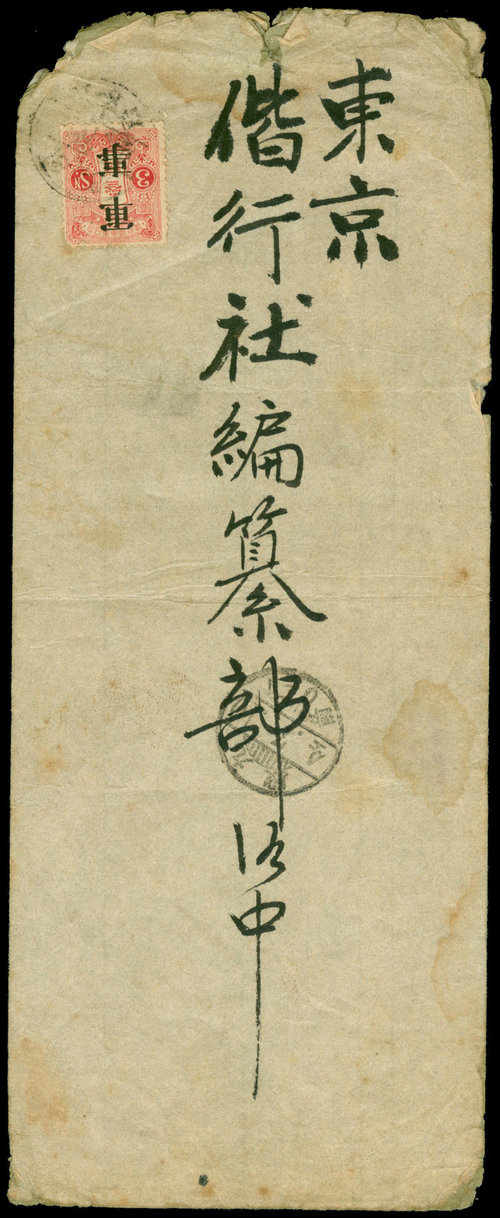 東京
偕行社編纂部御中
軍事
3 Sn